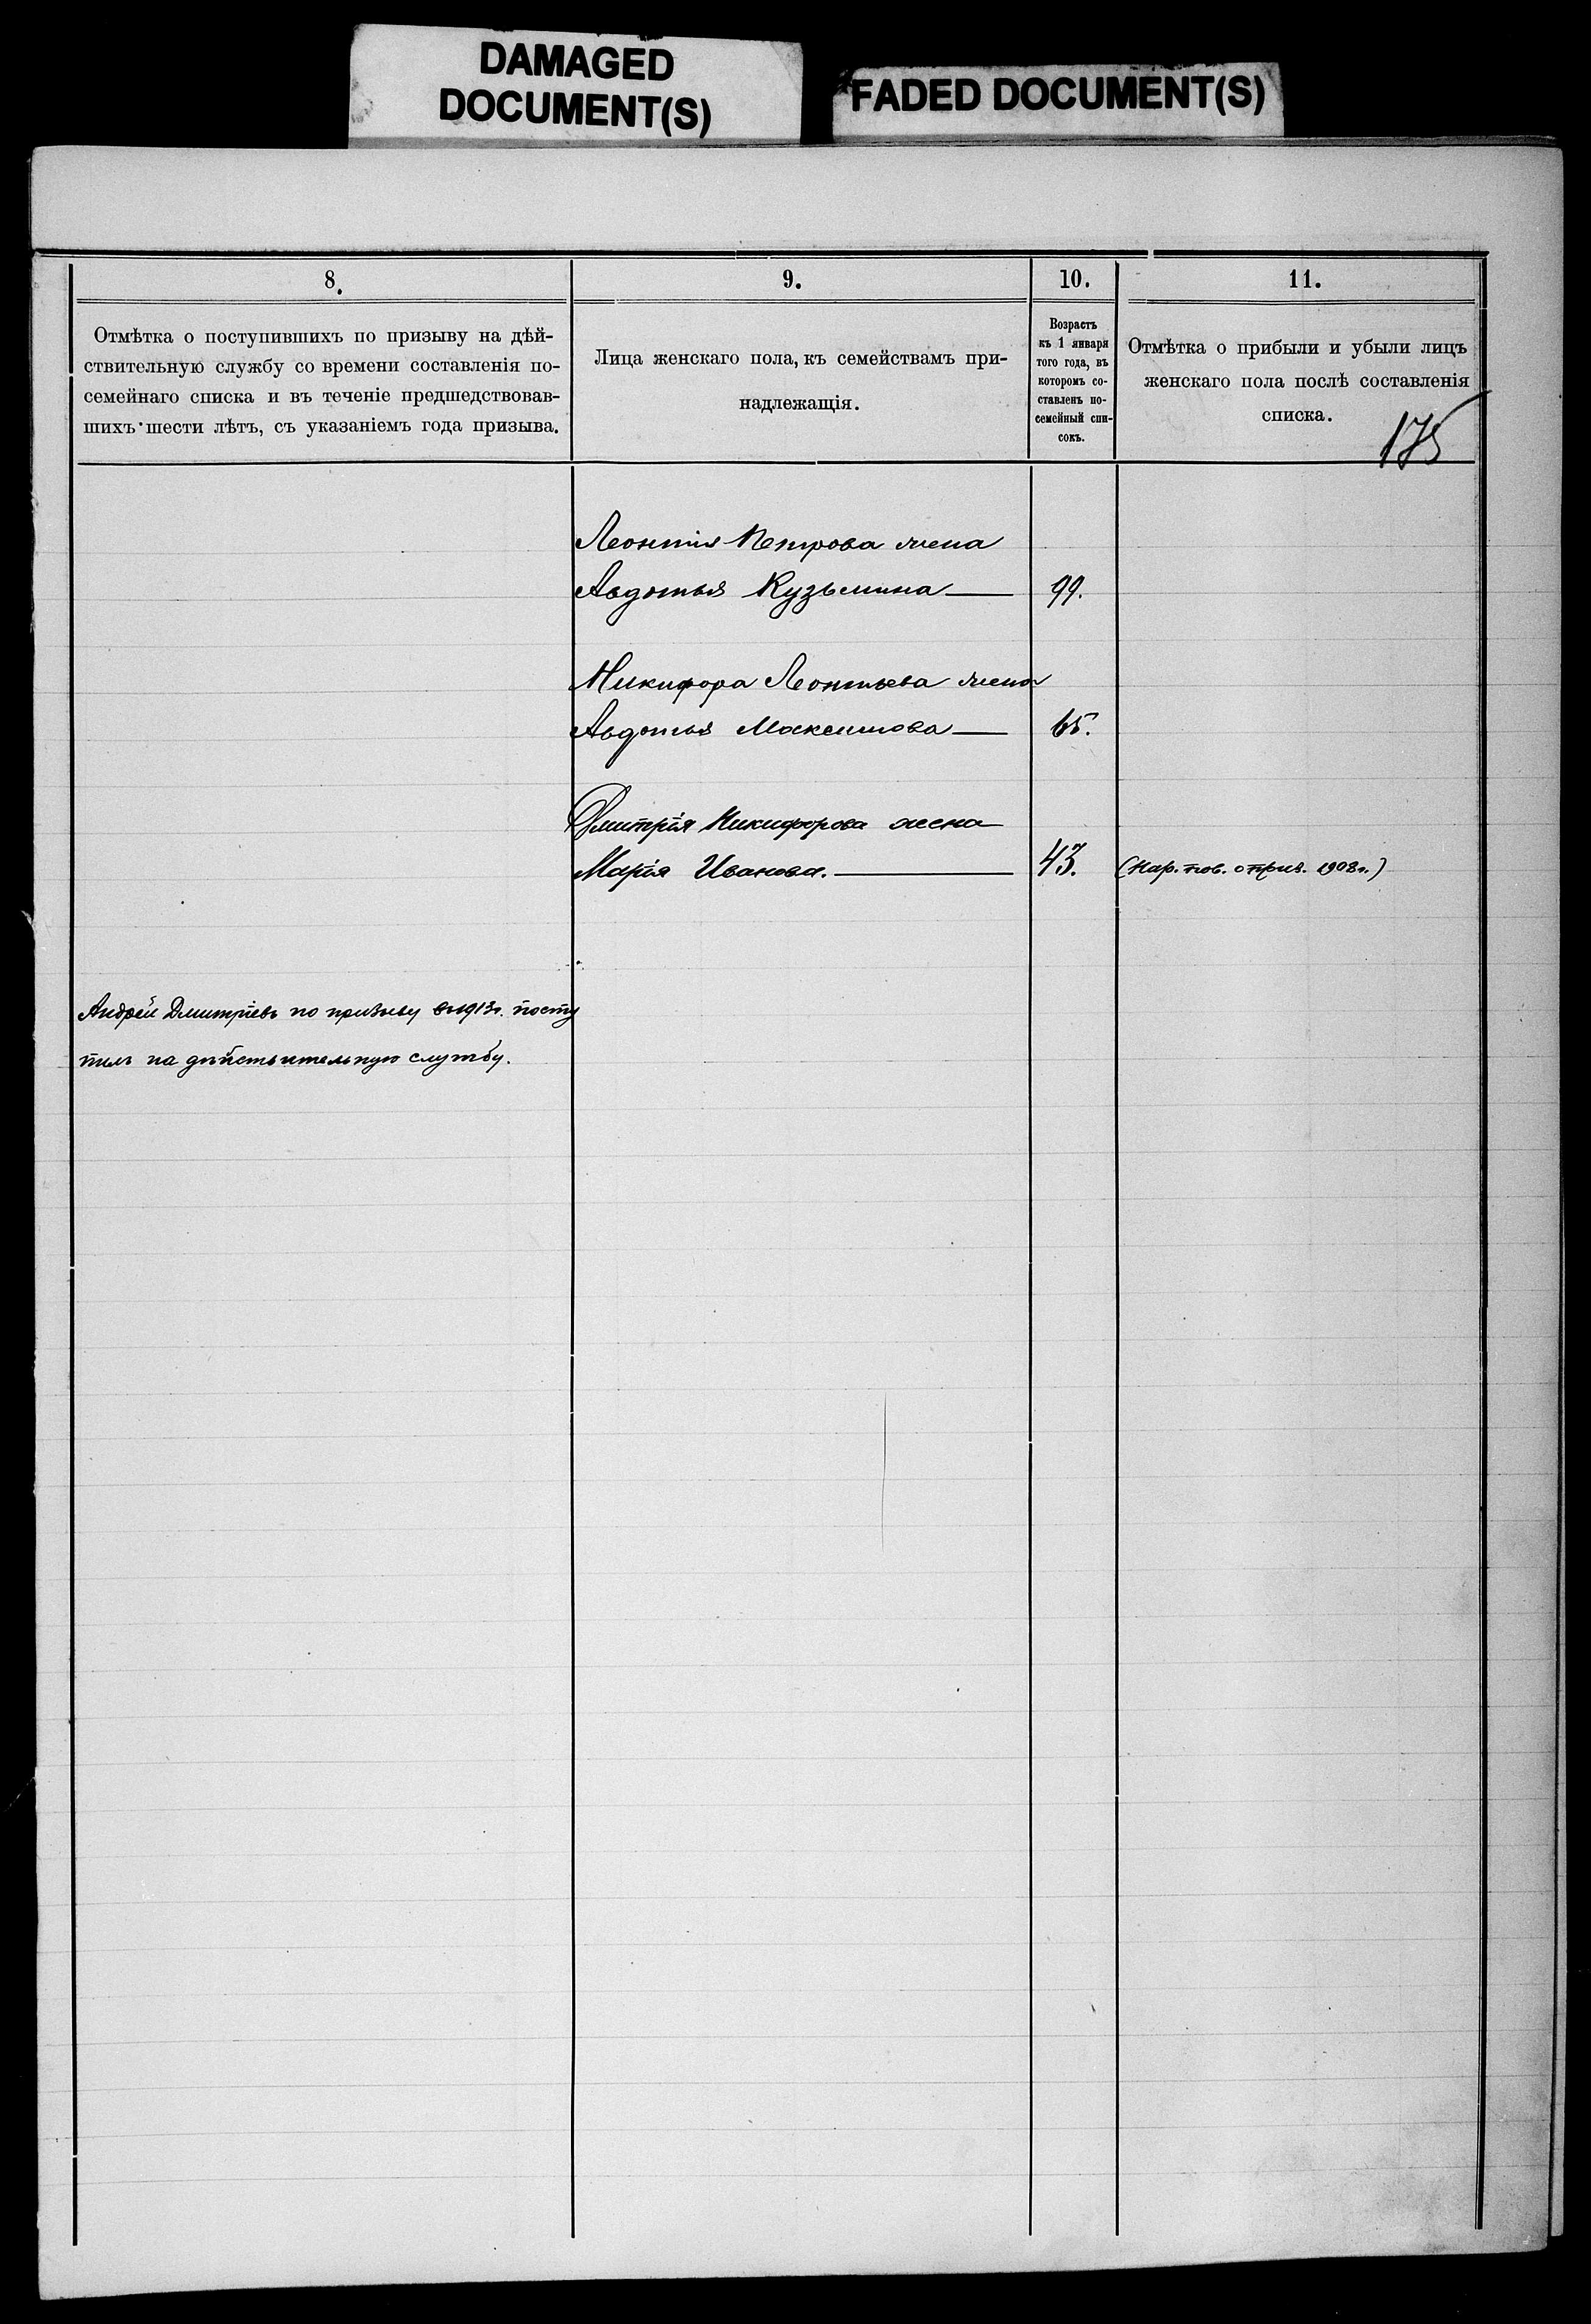 DAMAGED
DOCUMENT(S)
FADED DOCUMENT(S)
8.
Отмѣтка о поступившихъ по призыву на дѣй-
ствительную службу со времени составленія по-
семейнаго списка и въ теченіе предшедствовав-
шихъ шести лѣтъ, съ указаніемъ года призыва.
9.
Лица женскаго пола, къ семействамъ при-
надлежащія.
10.
Возрастъ
къ 1 января
того года, въ
которомъ со-
ставленъ по-
семейный спи-
сокъ.
11.
Отмѣтка о прибыли и убыли лицъ
женскаго пола послѣ составленія
списка.
175
Леонтія Петрова жена
Авдотья Кузьмина 99.
Никифора Леонтьева жена
Авдотья Максимова 65.
Дмитрія Никифорова жена
Марія Иванова. 43. 1908г.)
Андрей Дмитріевъ по призыву в 1913г. посту
пилъ на дѣйствительную службу.